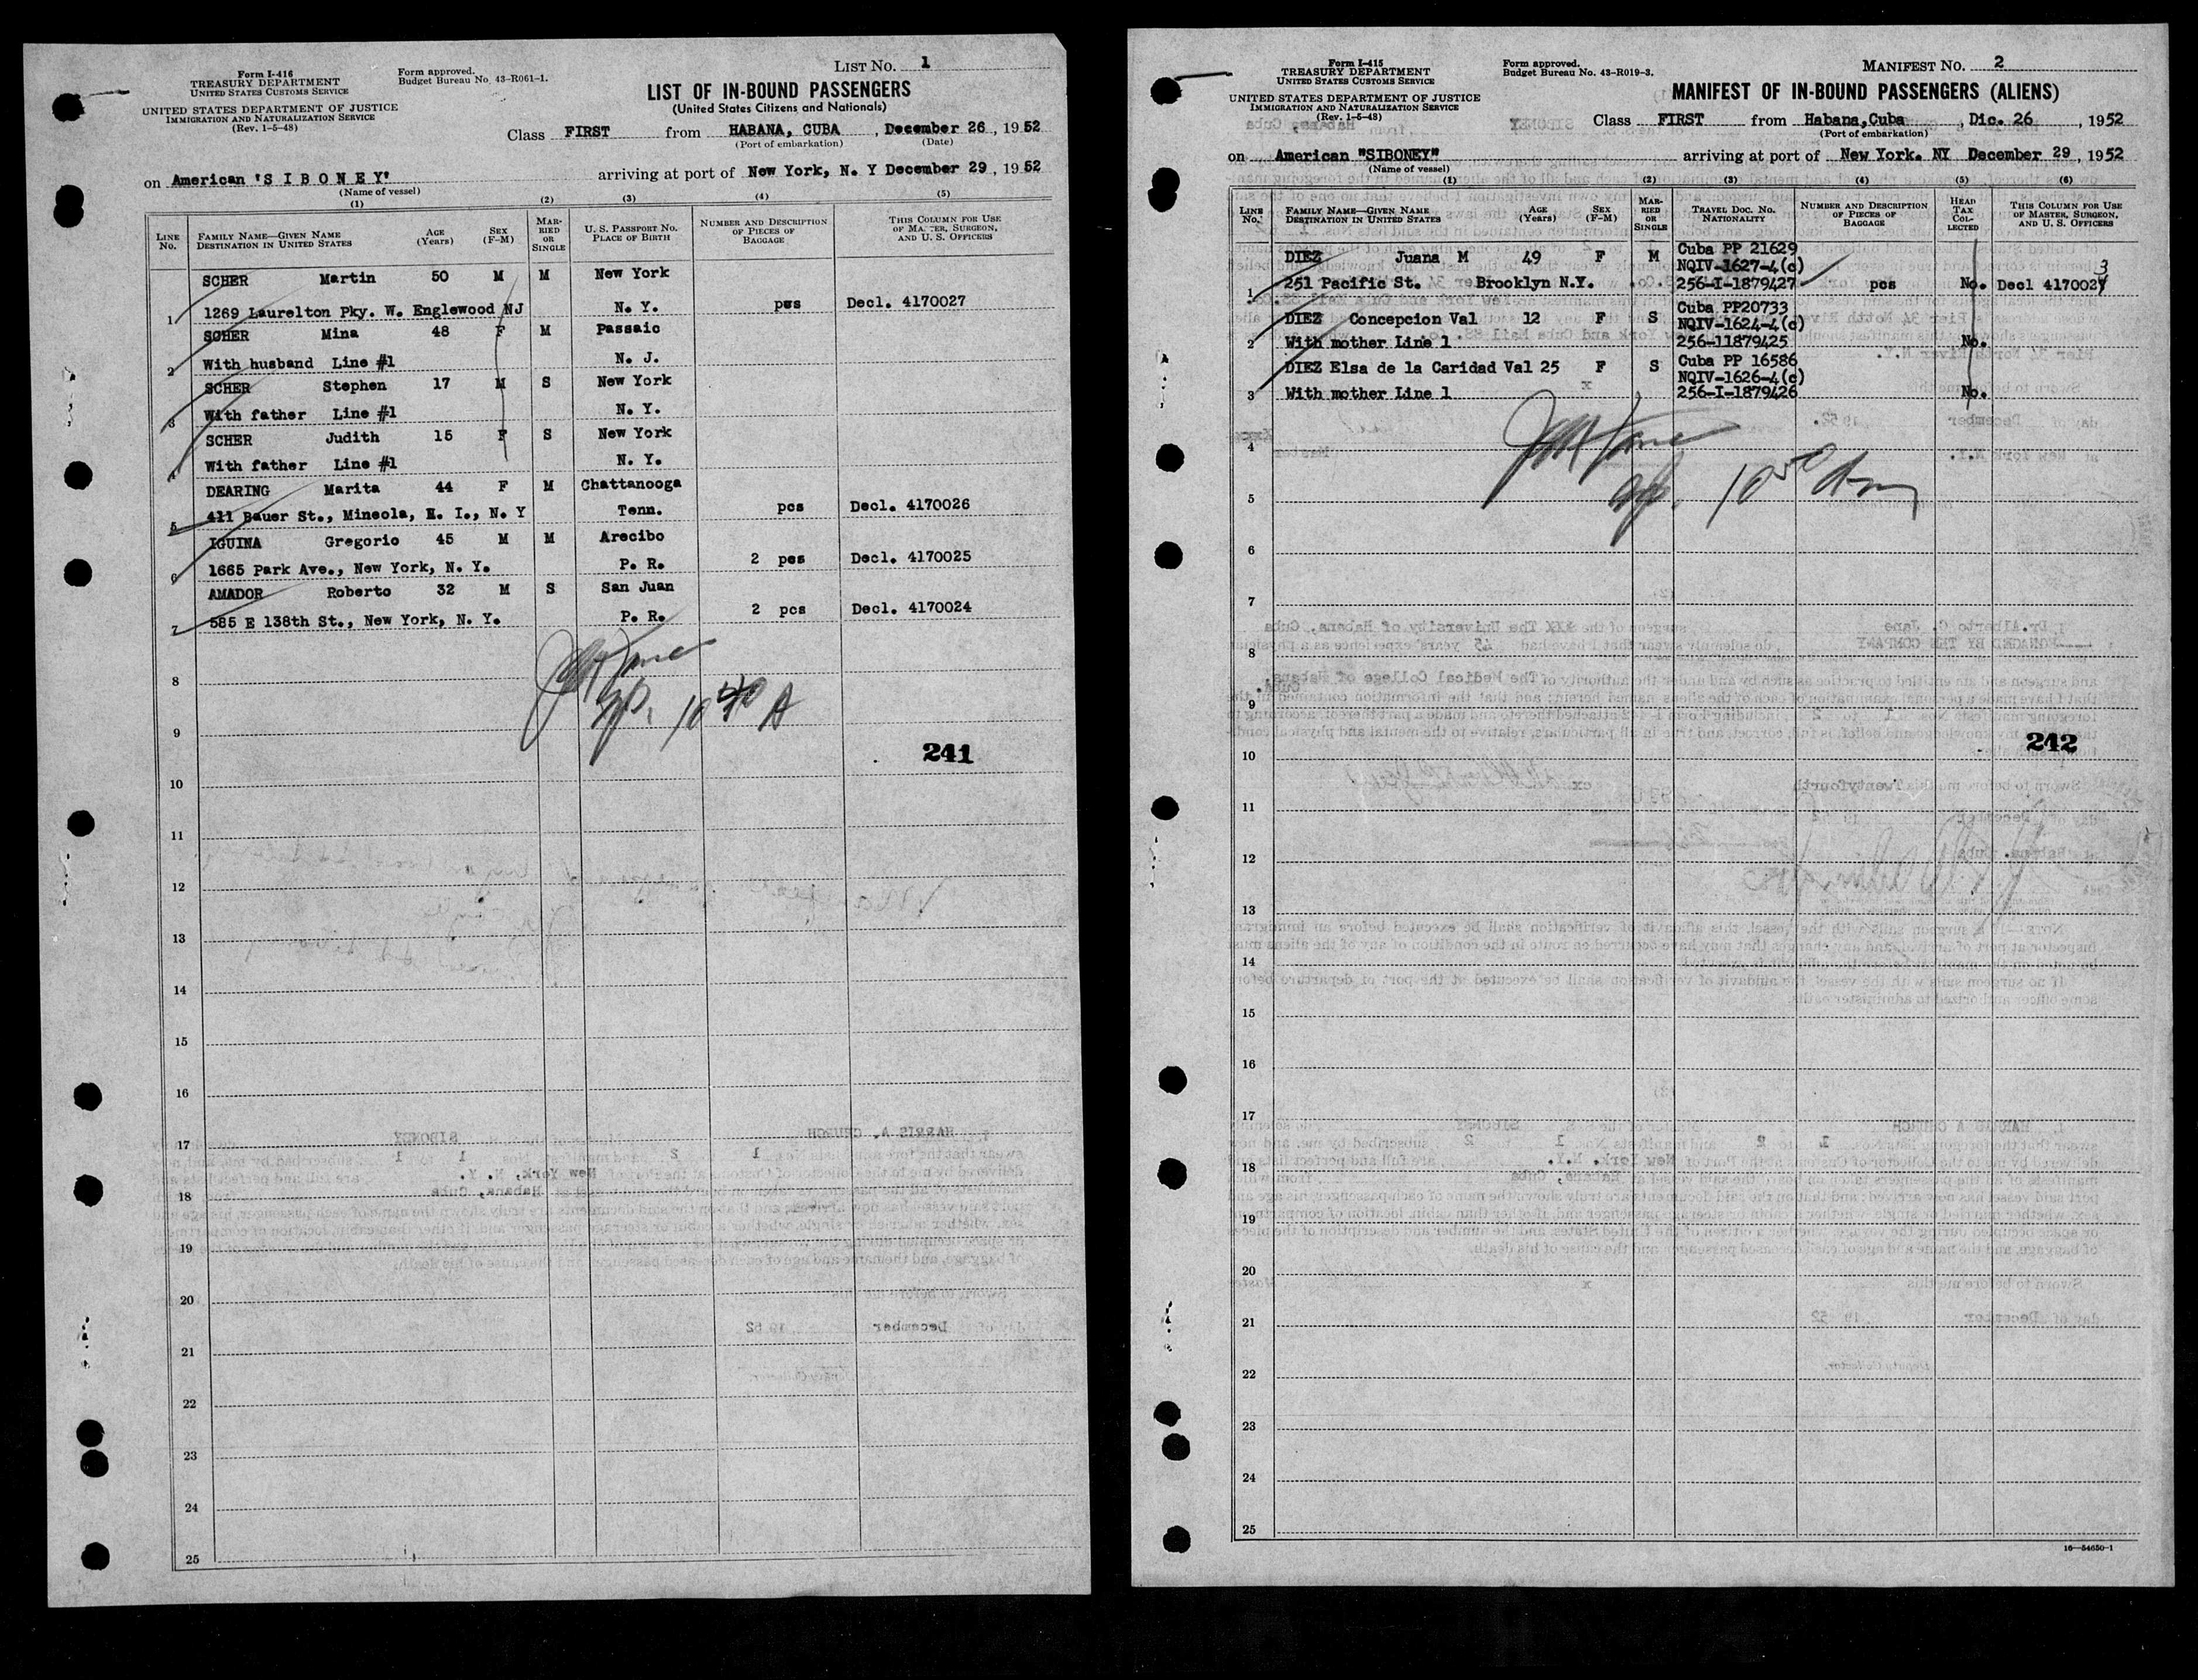 Form I-416
TREASURY DEPARTMENT
UNITED STATES CUSTOMS SERVICE
UNITED STATES DEPARTMENT OF JUSTICE
IMMIGRATION AND NATURALIZATION SERVICE
(Rev. 1-5-48)
Form approved.
Budget Bureau No. 43-R061-1.
LIST NO. 1
LIST OF IN-BOUND PASSENGERS
(United States Citizens and Nationals)
Class FIRST from HABANA, CUBA, December 26, 1952
(Port of embarkation) (Date)
on American "S I B O N E Y" arriving at port of New York, N. Y December 29, 1952
(Name of vessel)
(1) (2) (3) (4) (5)
LINE No. FAMILY NAME—GIVEN NAME DESTINATION IN UNITED STATES AGE (Years) SEX (F-M) MARRIED OR SINGLE U. S. PASSPORT NO. PLACE OF BIRTH NUMBER AND DESCRIPTION OF PIECES OF BAGGAGE THIS COLUMN FOR USE OF MASTER, SURGEON, AND U. S. OFFICERS
SCHER Martin 50 M M New York
1 1269 Laurelton Pky. W. Englewood NJ N. Y. pcs Decl. 4170027
SCHER Mina 48 F M Passaic
2 With husband Line #1 N. J.
SCHER Stephen 17 M S New York
3 With father Line #1 N. Y.
SCHER Judith 15 F S New York
4 With father Line #1 N. Y.
DEARING Marita 44 F M Chattanooga
5 411 Bauer St., Mineola, L. I., N. Y Tenn. pcs Decl. 4170026
IGUINA Gregorio 45 M M Arecibo
6 1665 Park Ave., New York, N. Y. P. R. 2 pcs Decl. 4170025
AMADOR Roberto 32 M S San Juan
7 585 E 138th St., New York, N. Y. P. R. 2 pcs Decl. 4170024
8
9
241
10
11
12
13
14
15
16
17
18
19
20
21
22
23
24
25
Form I-415
TREASURY DEPARTMENT
UNITED STATES CUSTOMS SERVICE
UNITED STATES DEPARTMENT OF JUSTICE
IMMIGRATION AND NATURALIZATION SERVICE
(Rev. 1-5-48)
Form approved.
Budget Bureau No. 43-R019-3.
MANIFEST NO. 2
MANIFEST OF IN-BOUND PASSENGERS (ALIENS)
Class FIRST from Habana,Cuba, Dic. 26, 1952
(Port of embarkation)
on American "SIBONEY" arriving at port of New York. NY December 29, 1952
(Name of vessel)
(1) (2) (3) (4) (5) (6)
LINE No. FAMILY NAME—GIVEN NAME DESTINATION IN UNITED STATES AGE (Years) SEX (F-M) MARRIED OR SINGLE TRAVEL DOC. NO. NATIONALITY NUMBER AND DESCRIPTION OF PIECES OF BAGGAGE HEAD TAX COLLECTED THIS COLUMN FOR USE OF MASTER, SURGEON, AND U. S. OFFICERS
Cuba PP 21629
DIEZ Juana M 49 F M NQIV-1627-4(c)
1 251 Pacific St. Brooklyn N.Y. 256-I-1879427 pcs No. Decl 4170023
Cuba PP20733
DIEZ Concepcion Val 12 F S NQIV-1624-4(c)
2 With mother Line 1 256-11879425 No.
Cuba PP 16586
DIEZ Elsa de la Caridad Val 25 F S NQIV-1626-4(c)
3 With mother Line 1 256-I-1879426 No.
4
5
6
7
8
9
242
10
11
12
13
14
15
16
17
18
19
20
21
22
23
24
25
16—54650-1